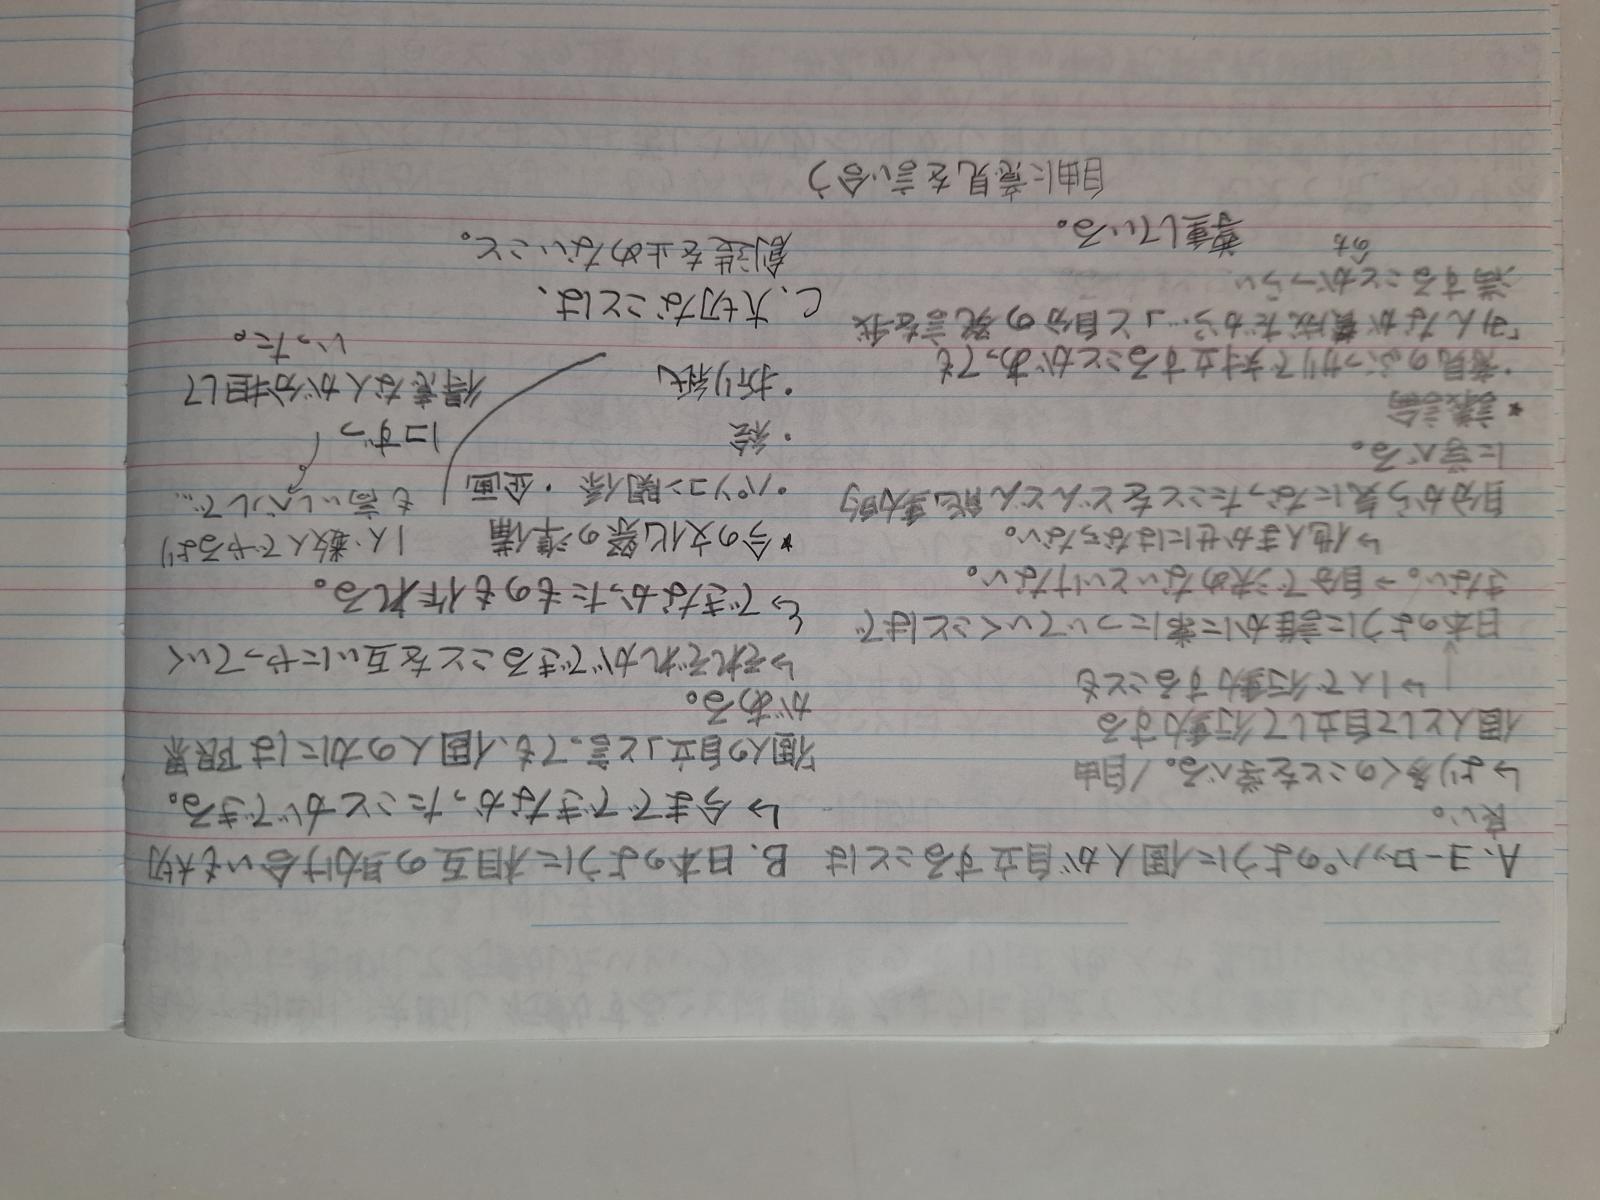 A. ヨーロッパのように個人が自立することは
良い。
↳より多くのことを学べる。/自由
個人として自立して行動する
↳1人で行動することも
日本のように誰かに常についていくことはで
きない。→自分で決めないといけない。
↳他人まかせにはならない。
自分から気になったことをどんどん能動的
に学べる。
*議論
・意見のぶつかりで対立することがあっても
「みんなが賛成だから…」と自分の発言を我
満することがつらい
尊重している。
自由に意見を言い合う
B. 日本のように相互の助け合いも大切
↳今までできなかったことができる。
「個人の自立」と言っても、個人の力には限界
がある。
↳それぞれができることを互いにやっていく
↳できなかったものも作れる。
*今の文化祭の準備
・パソコン関係・企画
・絵
・折り紙
1人・数人でやるより
も高いレベルで…
1コずつ
得意な人が分担して
いった。
C. 大切なことは、
創造を止めないこと。